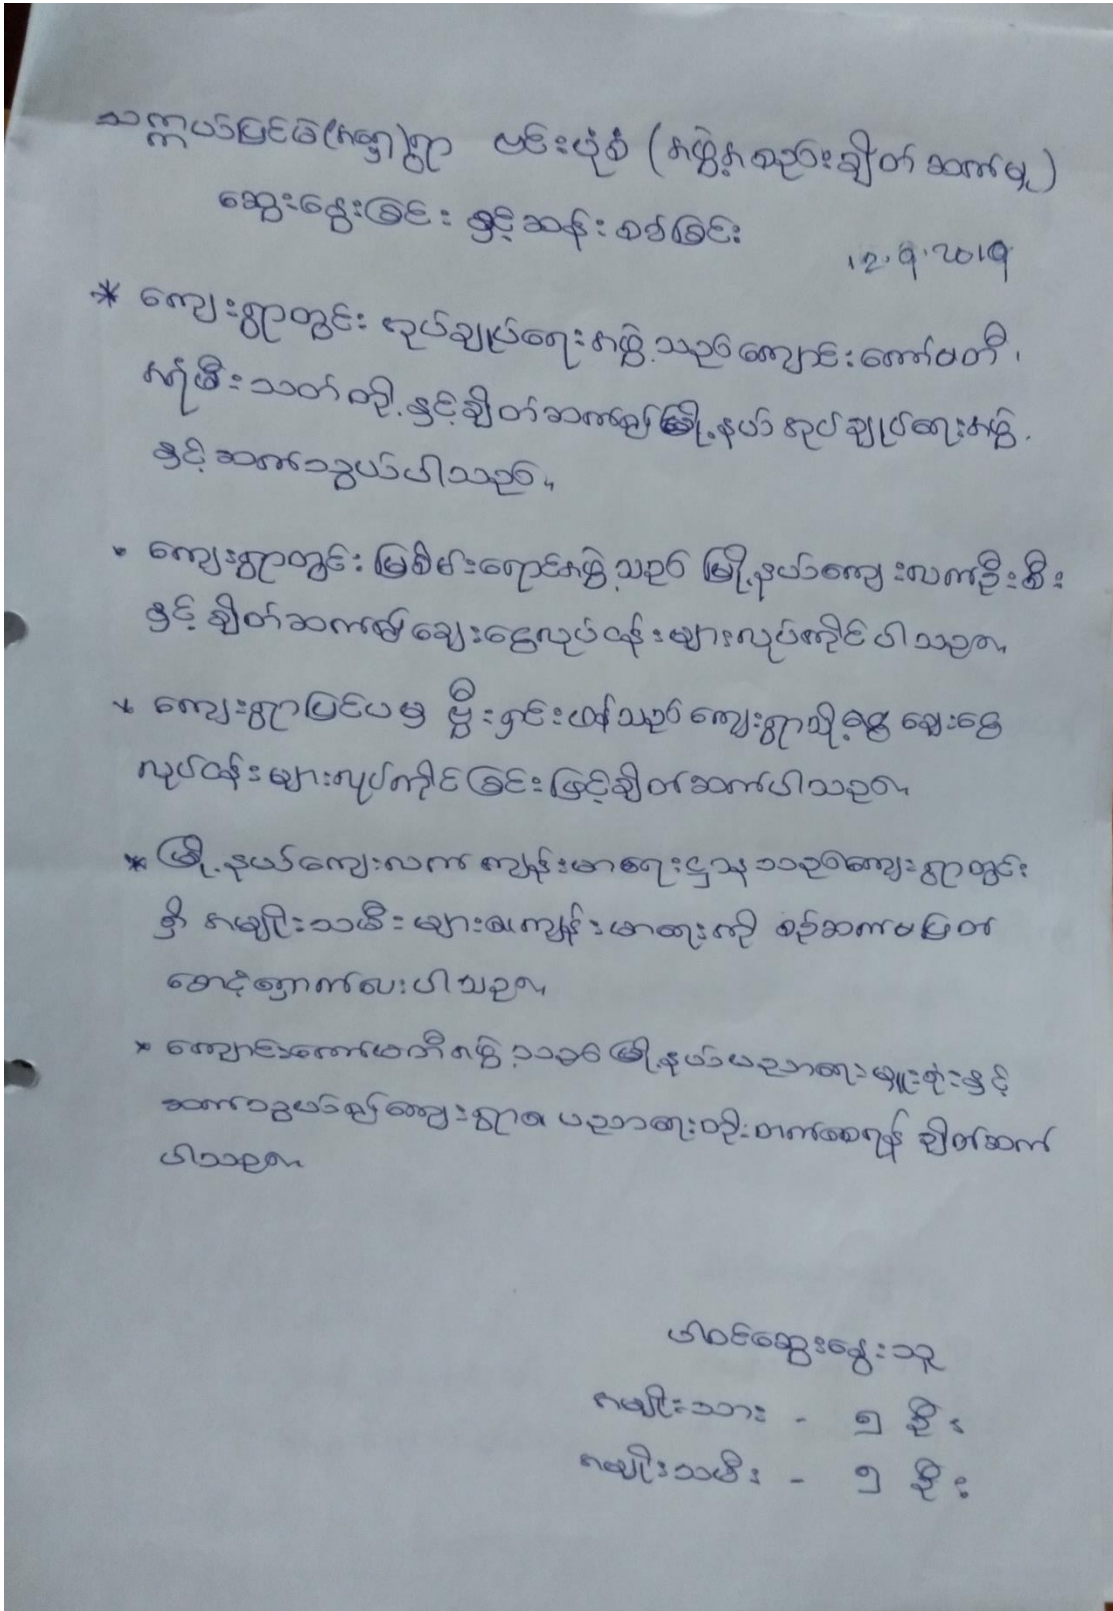 သက္ကယ်ပြင်မ(အရှေ့)ရွာ ဗင်းပုံစံ (အဖွဲ့အစည်းချိတ်ဆက်မှု)
ဆွေးနွေးခြင်း နှင့်ဆန်းစစ်ခြင်း
12.9.2019
* ကျေးရွာတွင်း အုပ်ချုပ်ရေးအဖွဲ့သည် ကျောင်းကော်မတီ၊
အရံမီးသတ်တို့နှင့်ချိတ်ဆက်၍ မြို့နယ်အုပ်ချုပ်ရေးအဖွဲ့
နှင့် ဆက်သွယ်ပါသည်။
* ကျေးရွာတွင်း မြစိမ်းရောင်အဖွဲ့သည် မြို့နယ်ကျေးလက်ဦးစီး
နှင့် ချိတ်ဆက်၍ ချေးငွေလုပ်ငန်းများလုပ်ကိုင်ပါသည်။
* ကျေးရွာပြင်ပမှ မှီးရှင်းဟန်သည် ကျေးရွာသို့ ငွေချေးငွေ
လုပ်ငန်းများလုပ်ကိုင်ခြင်းဖြင့်ချိတ်ဆက်ပါသည်။
* မြို့နယ်ကျေးလက် ကျန်းမာရေးဌာနသည်ကျေးရွာတွင်း
ရှိ အမျိုးသမီးများ၏ကျန်းမာရေးကို စဉ်ဆက်မပြတ်
စောင့်ရှောက်ပေးပါသည်။
* ကျောင်းကော်မတီအဖွဲ့သည် မြို့နယ်ပညာရေးမှူးရုံးနှင့်
ဆက်သွယ်၍ကျေးရွာ၏ ပညာရေးတိုးတက်စေရန် ချိတ်ဆက်
ပါသည်။
ပါဝင်ဆွေးနွေးသူ
အမျိုးသား - ၅ ဦး
အမျိုးသမီး - ၅ ဦး